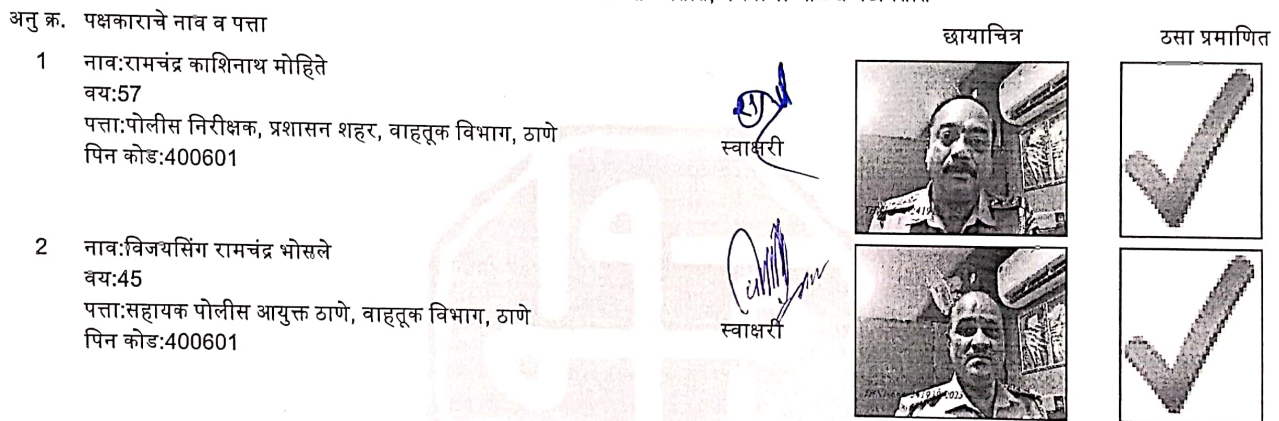 अनु क्र. पक्षकाराचे नाव व पत्ता
छायाचित्र
ठसा प्रमाणित
1 नाव:रामचंद्र काशिनाथ मोहिते
वय:57
पत्ता:पोलीस निरीक्षक, प्रशासन शहर, वाहतूक विभाग, ठाणे
पिन कोड:400601
स्वाक्षरी
2 नाव:विजयसिंग रामचंद्र भोसले
वय:45
पत्ता:सहायक पोलीस आयुक्त ठाणे, वाहतूक विभाग, ठाणे
पिन कोड:400601
स्वाक्षरी